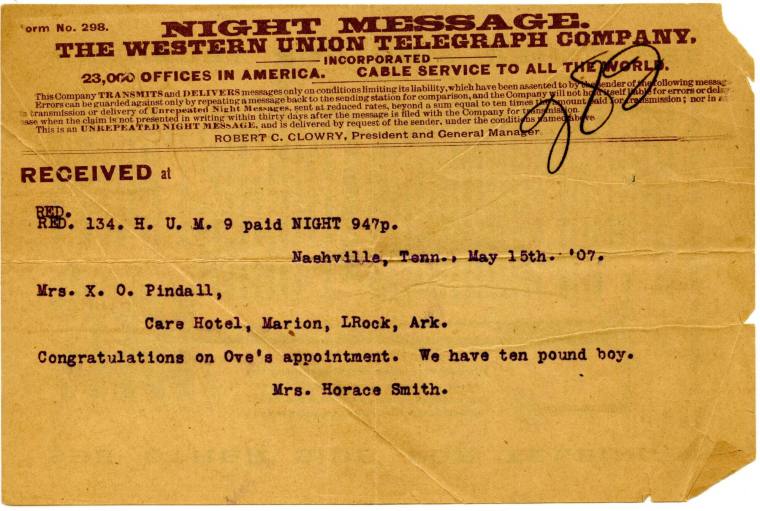 orm No. 298.
NIGHT MESSAGE.
THE WESTERN UNION TELEGRAPH COMPANY.
INCORPORATED
23,000 OFFICES IN AMERICA. CABLE SERVICE TO ALL THE WORLD.
This Company TRANSMITS and DELIVERS messages only on conditions limiting its liability, which have been assented to by the sender of the following messag
Errors can be guarded against only by repeating a message back to the sending station for comparison, and the Company will not hold itself liable for errors or dela
transmission or delivery of Unrepeated Night Messages, sent at reduced rates, beyond a sum equal to ten times the amount paid for transmission; nor in a
ase when the claim is not presented in writing within thirty days after the message is filed with the Company for transmission.
This is an UNREPEATED NIGHT MESSAGE, and is delivered by request of the sender, under the conditions named above.
ROBERT C. CLOWRY, President and General Manager.
282
RECEIVED at
RED.
RED. 134. H. U. M. 9 paid NIGHT 947p.
Nashville, Tenn., May 15th. '07.
Mrs. X. O. Pindall,
Care Hotel, Marion, LRock, Ark.
Congratulations on Ove's appointment. We have ten pound boy.
Mrs. Horace Smith.